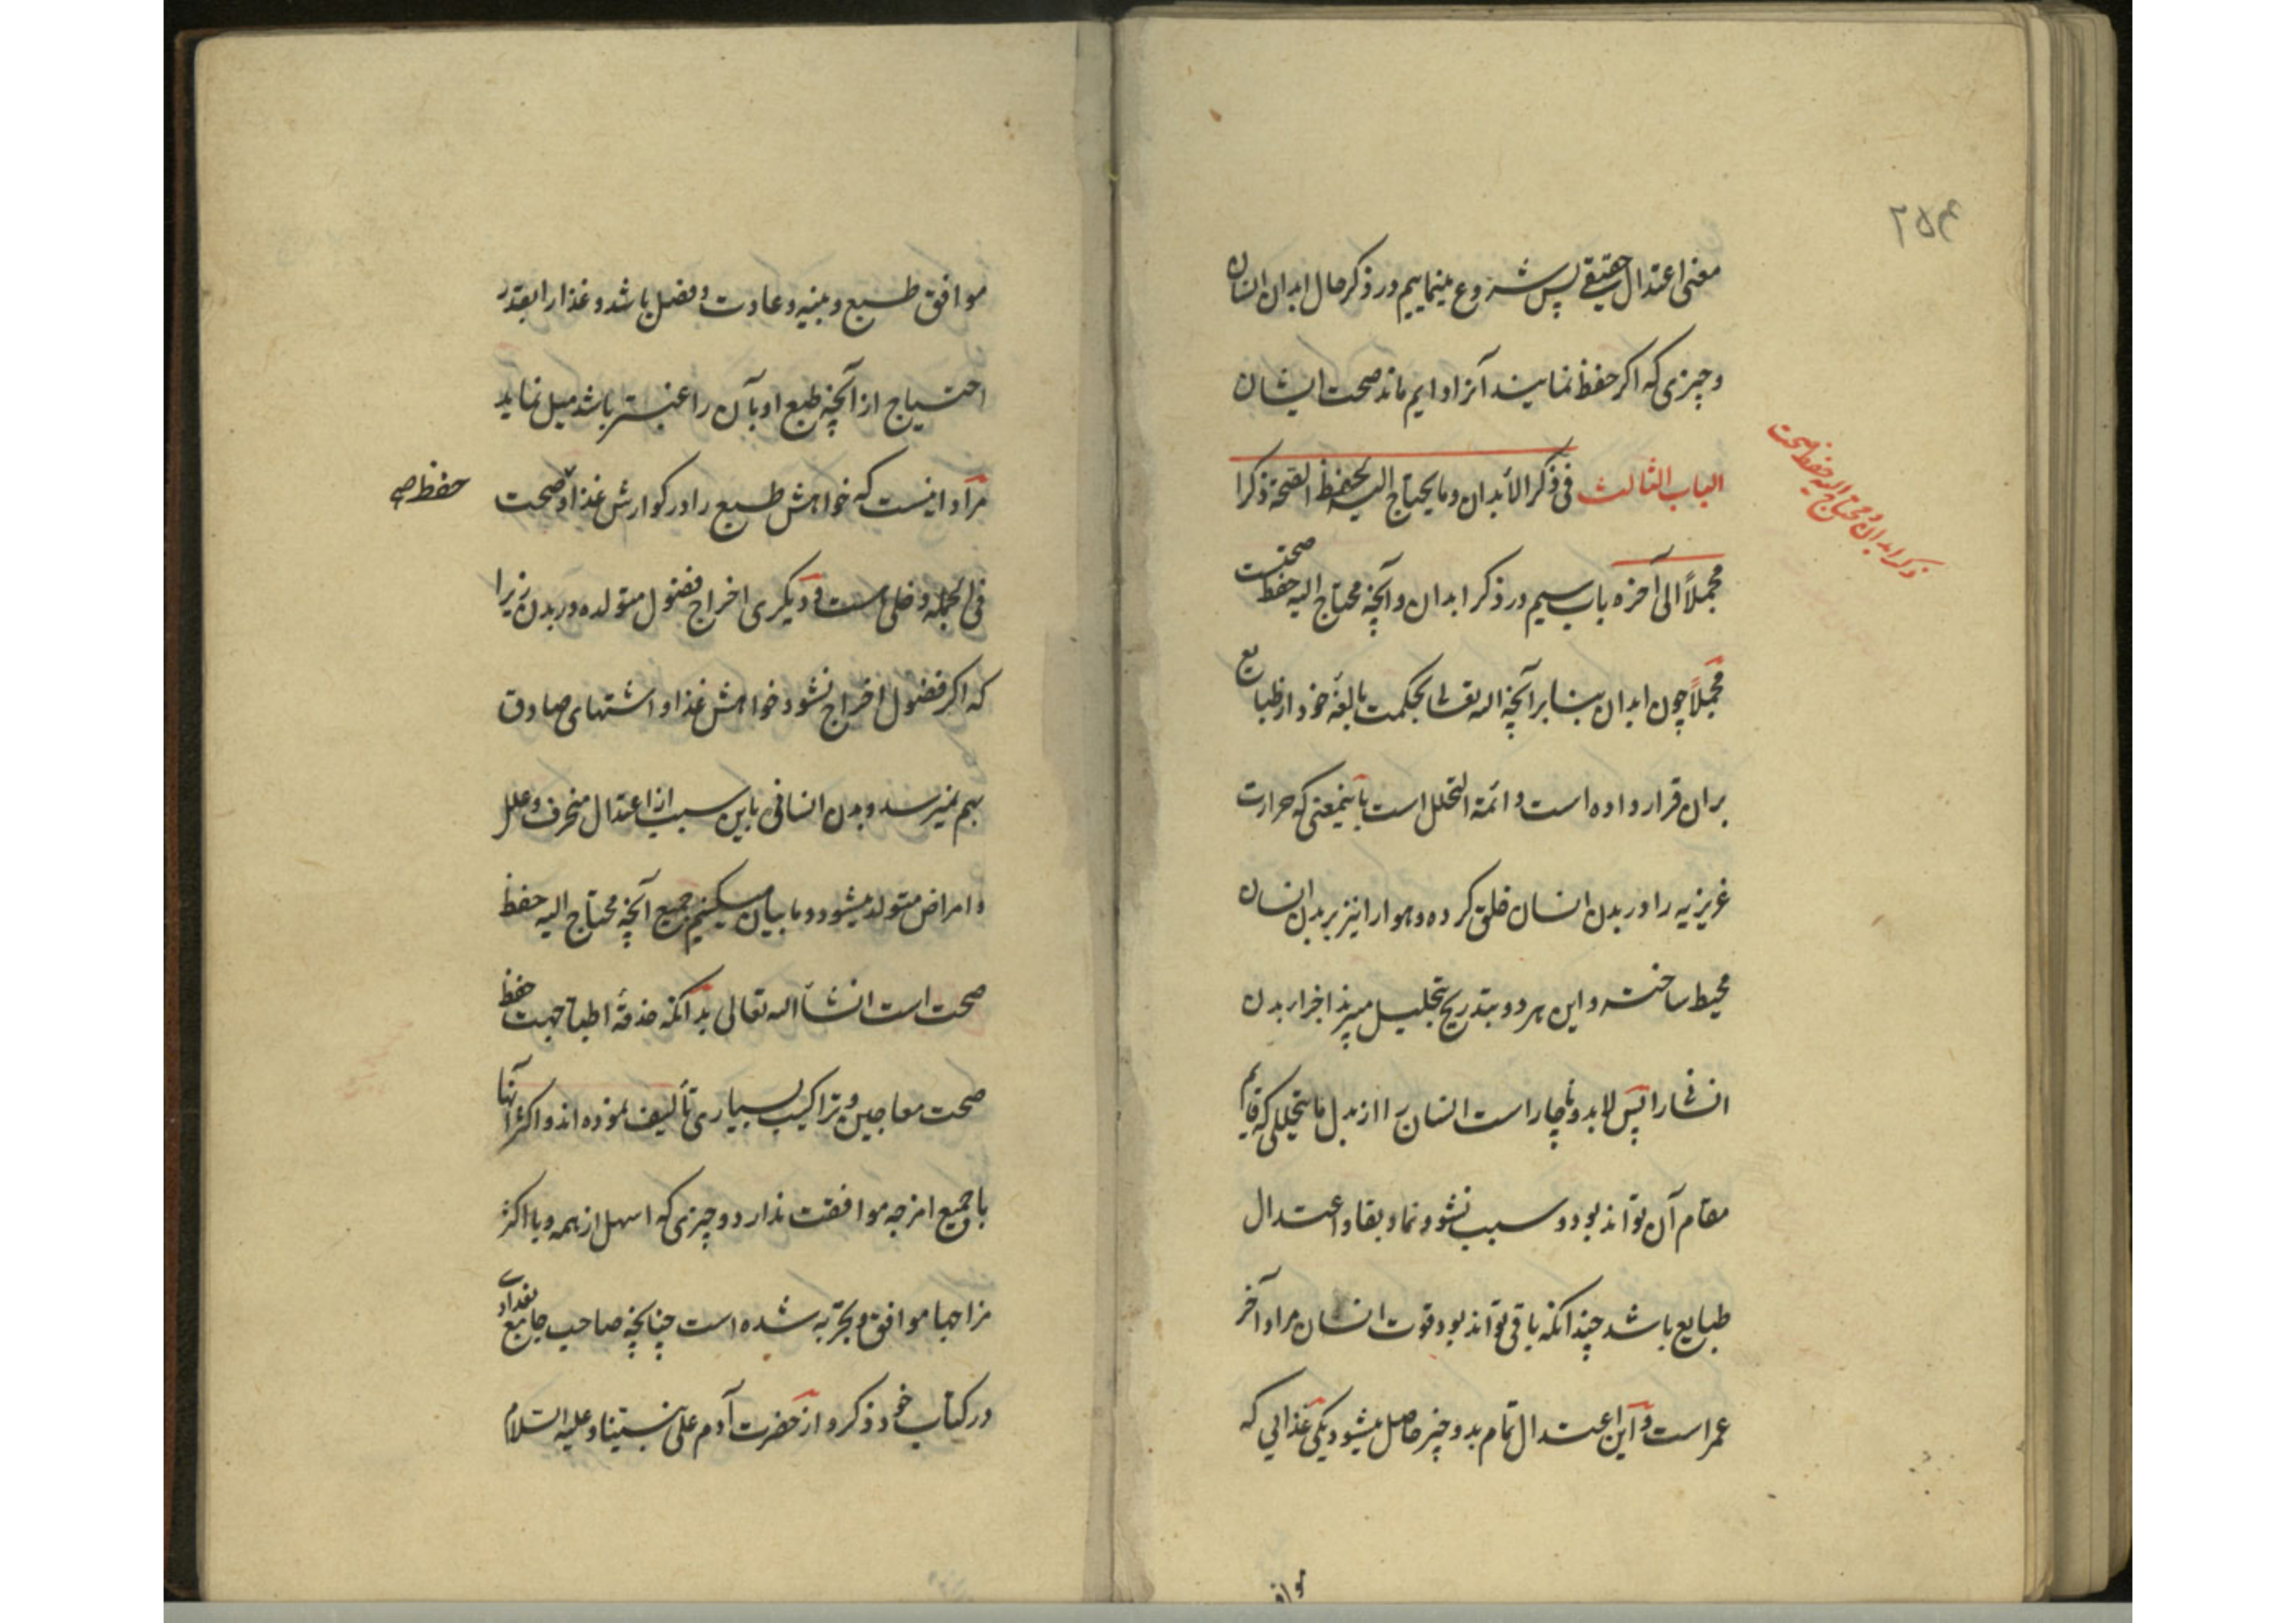 ۲۵۴
معنی اعتدال حقیقی پس شروع مینماییم در ذکر حال ابدان انسان
و چیزی که اکر حفظ نمایند آنرا دایم ماند صحت ایشان
الباب الثالث فی ذکر الأبدان و ما یحتاج الیه لحفظ الصحة ذکرا
ذکر ابدان و محتاج الیه حفظ صحت
مجملاً الی آخره باب سیم در ذکر ابدان و آنچه محتاج الیه حفظ صحتست
مجملاً چون ابدان بنابر آنچه الله تعالی بحکمت بالغهٔ خود از طبایع
بران قرار داده است دائمة التحلل است باینمعنی که حرارت
غریزیه را در بدن انسان خلق کرده و هوا را نیز بر بدن انسان
محیط ساخته و این هر دو بتدریج تحلیل میبرند اجزاء بدن
انسانی را پس لابد و ناچار است انسان را از بدل ما یتحللی که قایم
مقام آن تواند بود و سبب نشو و نما و بقا و اعتدال
طبایع باشد چندانکه باقی تواند بود قوت انسان مراد آخر
عمر است و این اعتدال تمام بدو چیز حاصل میشود یکی غذایی که
موافق
موافق طبع و بنیه و عادت و فصل باشد و غذا را بقدر
احتیاج از آنچه طبع او بآن راغبتر باشد میل نماید
مراد اینست که خواهش طبع را در کوارش غذا و صحت
حفظ صح
فی الجمله دخلی هست و دیکری اخراج فضول متولده در بدن زیرا
که اکر فضول اخراج نشود خواهش غذا و اشتهای صادق
بهم نمیرسد و بدن انسانی باین سبب از اعتدال منحرف و علل
و امراض متولد میشود و ما بیان میکنیم جمیع آنچه محتاج الیه حفظ
صحت است انشاء الله تعالی بدانکه حذقهٔ اطبا جهت حفظ
صحت معاجین و تراکیب بسیاری تألیف نموده اند و اکثر آنها
با جمیع امزجه موافقت ندارد و چیزی که اسهل از همه و با اکثر
مزاجها موافق و تجربه شده است چنانچه صاحب جامع بغدادی
در کتاب خود ذکر کرد از حضرت آدم علی نبینا و علیه السلام